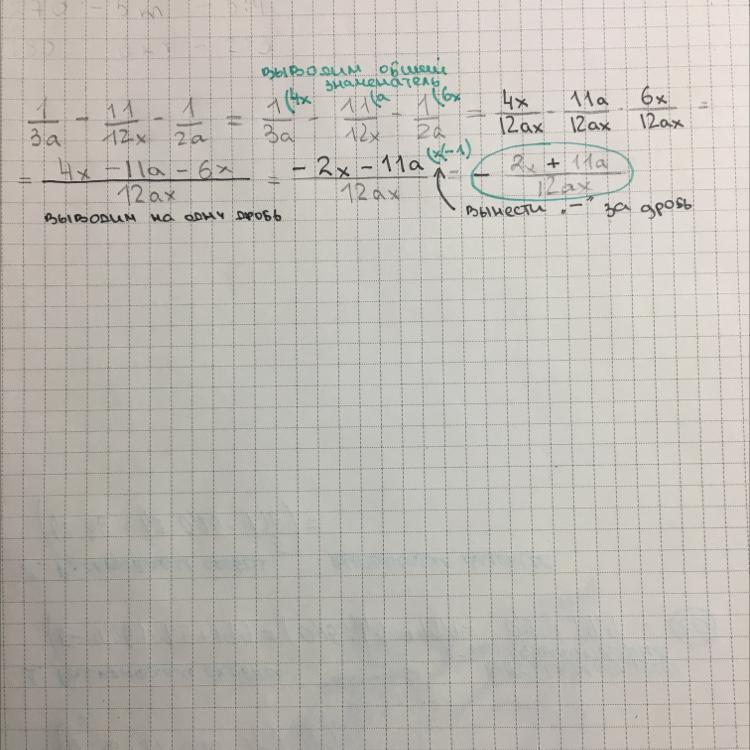 выводим общий
знаменатель
1/3a - 11/12x - 1/2a = 1(4x/3a - 11(a/12x - 1(6x/2a = 4x/12ax - 11a/12ax - 6x/12ax =
= 4x - 11a - 6x/12ax = - 2x - 11a/12ax (x(-1) = - 2x + 11a/12ax
выводим на одну дробь вынести „-” за дробь